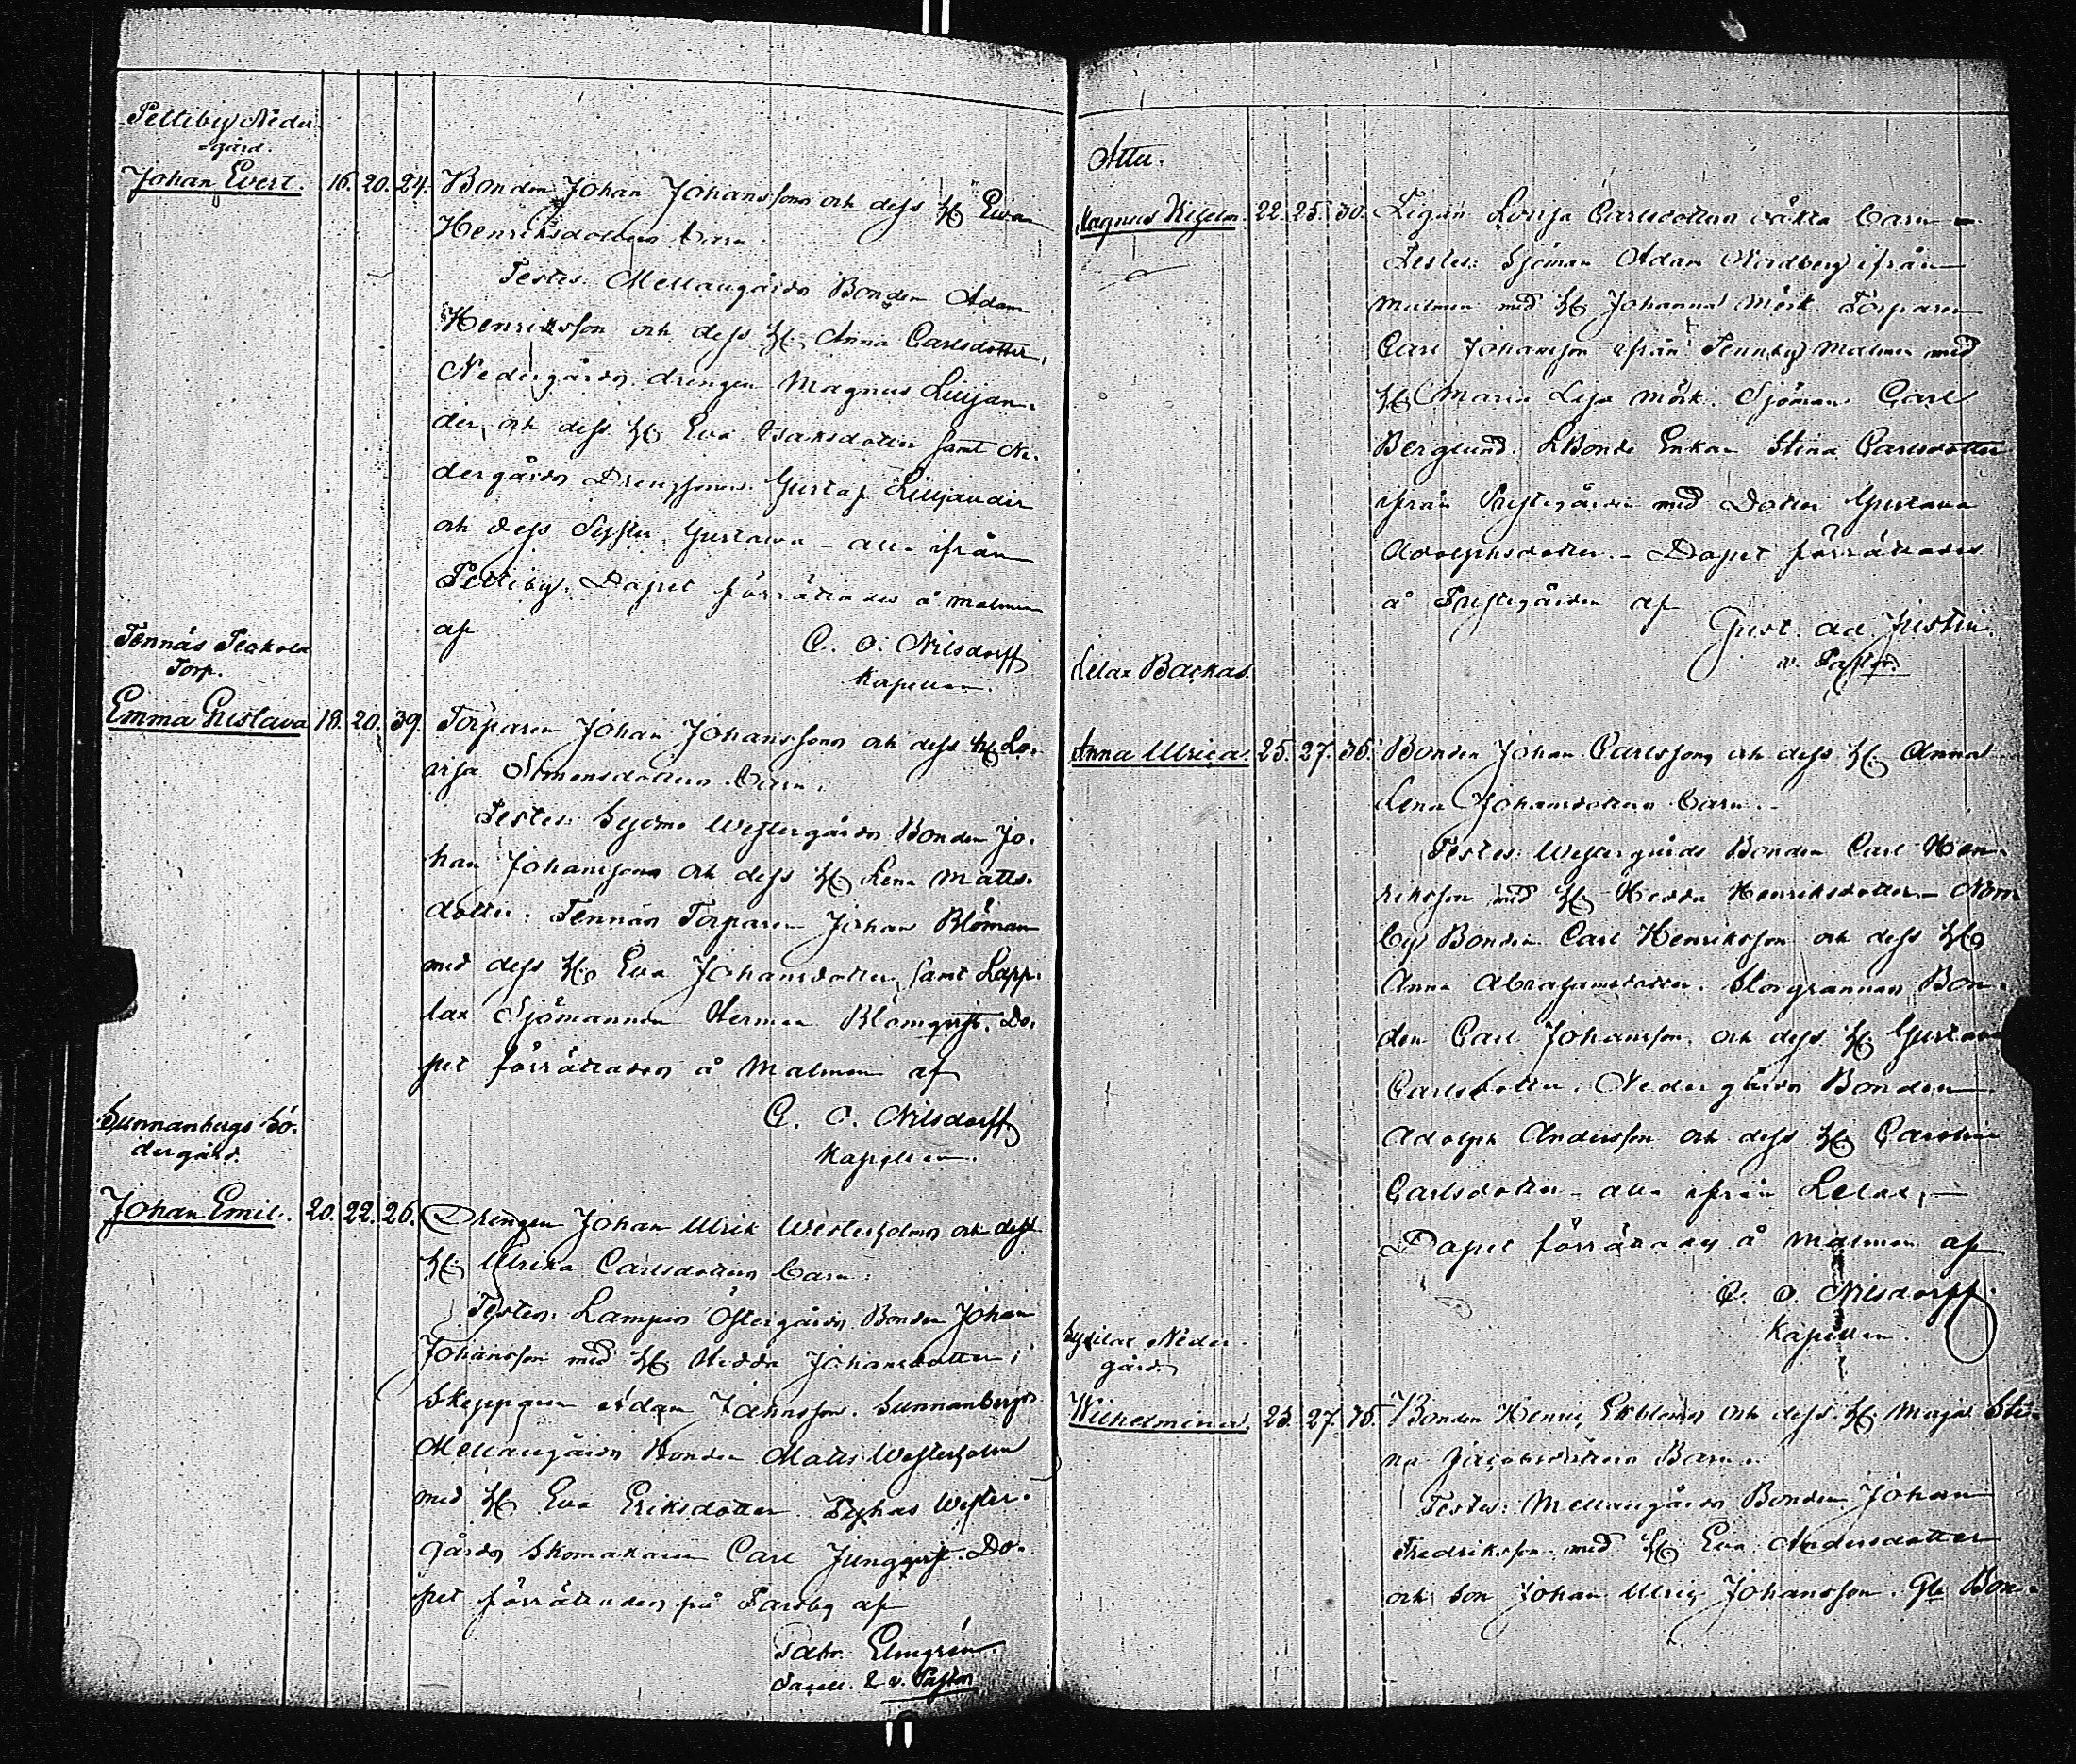 Pettiby Neder
gård.
Johan Evert. 16. 20. 24. Bonden Johan Johanssons och dess H. Evan
Henriksdotters barn:
Testes: Mellangårds Bonden Adam
Henriksson och dess H. Anna Carlsdotter,
Nedergårds drengen Magnus Liljan-
der, och dess H. Eva Isaksdotter samt Ne-
dergårds Drengsonen Gustaf Liljander
och dess Syster Gustava – alla ifrån
Pettiby. Dopet förrättades å Malmen
af
C. O. Nilsdorff
Kapellan.
Tennäs
Torp.
Emma Gustava 18. 20. 39. Torparen Johan Johanssons och dess H. Lo-
visa Simonsdotters barn.
Testes: Westergårds Bonden Jo-
han Johansson och dess H. Lena Matts-
dotter: Tennäs Torparen Johan Blöman
med dess H. Eva Johansdotter, samt Lapp-
lax Sjömannen Herman Blomqvist. Do-
pet förrättades å Malmen af
C. O. Nilsdorff
Kapellan.
Sunnanbergs Sö-
dergård.
Johan Emil. 20. 22. 26. Drengen Johan Ulrik Westerholms och dess
H. Ulrika Carlsdotters barn:
Testes: Lampis Östergårds Bonden Johan
Johansson med H. Hedda Johansdotter;
Skepparen Adam Jansson. Sunnanbergs
Mellangårds Bonden Matts Westerholm
med H. Eva Eriksdotter Wester-
gårds Skomakaren Carl Jungqvist. Do-
pet förrättades på Parsby af
Elmgren.
Sacell. & v. Pastor
Attu.
Magnus Wilhelm. 22. 25. 30. Pigan Lovisa Carlsdotters oäkta barn –
Testes: Sjöman Adam Nordberg ifrån
Malmen med H. Johanna Mörk. Torparen
Carl Johansson ifrån Tennäs Malmen med
H. Maria Lisa Mörk. Sjöman Carl
Berglund. Bonde Enkan Stina Carlsdotter
ifrån Prestegården med Dotter Gustava
Adolphsdotter. – Dopet förrättades
å Prestegården af
Gust. Ad. Justin.
v. Pastor.
Lelax Backas.
Anna Ulrica. 25. 27. 35. Bonden Johan Carlssons och dess H. Anna
Lena Johansdotters barn.–
Testes: Westergårds Bonden Carl Hen-
riksson med H. Hedda Henriksdotter – Norr-
by Bonden Carl Henriksson och dess H.
Anna Abrahamsdotter. Storgrannas Bon-
den Carl Johansson och dess H. Gustava
Carlsdotter. Nedergårds Bonden
Adolph Andersson och dess H. Carolina
Carlsdotter – alla ifrån Lelax, –
Dopet förrättades å Malmen af
C. O. Nilsdorff.
Kapellan.
Sydilax Neder-
gård
Wilhelmina. 25. 27. 35. Bonden Henric Ekbloms och dess H. Maja Sti-
na Jacobsdotters Barn.
Testes: Mellangårds Bonden Johan
Fredriksson med H. Eva Andersdotter
och Son Johan Ulric Johansson. Gla Bon-